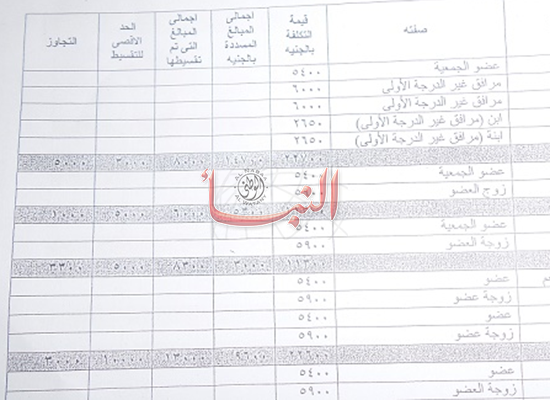 صفته قيمة التكلفة بالجنيه اجمالى المبالغ المسددة بالجنيه اجمالى المبالغ التى تم تقسيطها الحد الاقصى للتقسيط التجاوز
عضو الجمعية ٥٤٠٠
مرافق غير الدرجة الأولى ٦٠٠٠
مرافق غير الدرجة الأولى ٦٠٠٠
ابن (مرافق غير الدرجة الأولى) ٢٦٥٠
ابنة (مرافق غير الدرجة الأولى) ٢٦٥٠
٢٢٧٠٠ ٨٠٠٠ ٣٠٠٠ ٥٠٠٠
عضو الجمعية ٥٤٠٠
زوج العضو
النبأ
الوطنى
٦٠٠٠ ٥٠٠٠ ١٠٠٠
عضو الجمعية ٥٤٠٠
زوجة العضو ٥٩٠٠
١١٣٠٠ ٣٠٠٠ ٨٣٠٠ ٥٠٠٠ ٣٣٠٠
عضو ٥٤٠٠
زوجة عضو ٥٩٠٠
عضو ٥٤٠٠
زوجة عضو ٥٩٠٠
٢٢٦٠٠ ٩٦٠٠ ١٣٠٠٠ ١٠٠٠٠ ٣٠٠٠
عضو ٥٤٠٠
زوجة العضو ٥٩٠٠